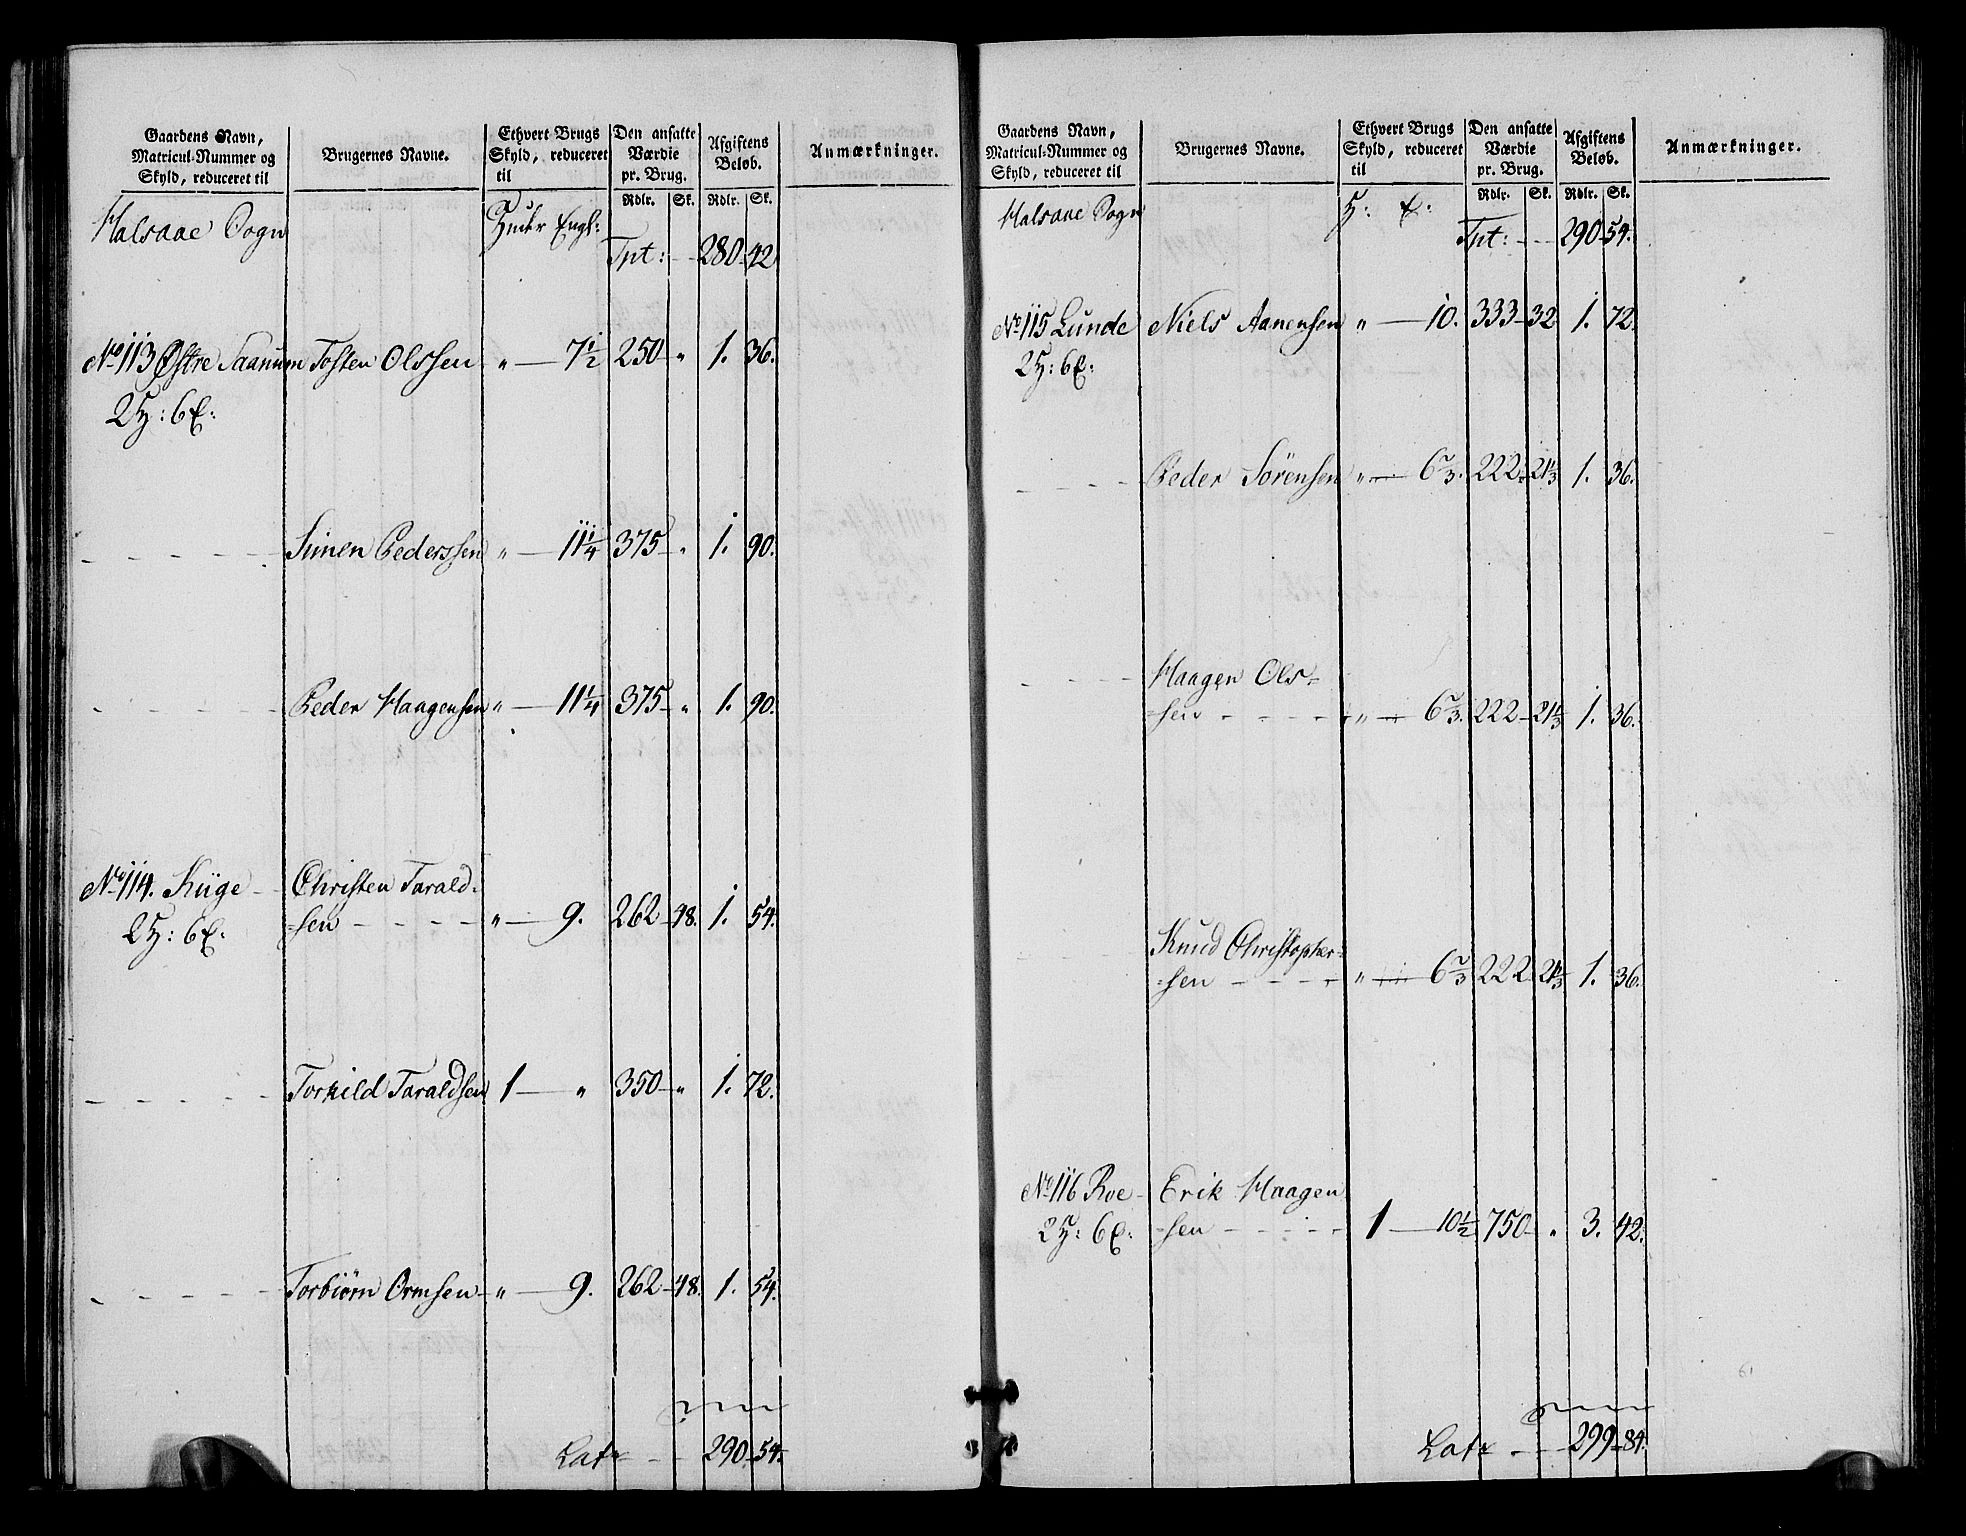 Gaardens Navn, Matricul-Nummer og Skyld, reduceret til | Brugernes Navne. | Ethvert Brugs Skyld, reduceret til | Den ansatte Værdie pr. Brug. Rdlr. Sk. | Afgiftens Beløb. Rdlr. Sk. | Anmærkninger.
Halsaae Sogn Huder Engl:
Tpt: - - 280 - 42
No 113 Østre Saanum Tosten Olssen " — 7½ 250 - " 1. 36.
2H: 6E:
- - - - Simen Pederssen " — 11¼ 375 - " 1. 90.
- - - - Peder Haagensen " — 11¼ 375 - " 1. 90.
No 114. Kiige - Christen Tarald-
2H: 6E: -sen - - - - " — 9. 262 - 48. 1. 54.
- - - - Torkild Taraldsen 1 — " 350 - " 1. 72.
- - - - Torbiørn Ormsen " — 9. 262 - 48. 1. 54.
Lat - - 290. 54.
Gaardens Navn, Matricul-Nummer og Skyld, reduceret til | Brugernes Navne. | Ethvert Brugs Skyld, reduceret til | Den ansatte Værdie pr. Brug. Rdlr. Sk. | Afgiftens Beløb. Rdlr. Sk. | Anmærkninger.
Halsaae Sogn H: E:
Tpt: - - 290 - 54.
No 115 Lunde Niels Aanensen " — 10. 333 - 32 1. 72.
2H: 6E:
- - - - Peder Sörensen " — 6⅔. 222 - 21⅓ 1. 36.
- - - - Haagen Ols-
-sen - - - - " — 6⅔. 222 - 21⅓ 1. 36.
Knud Christopher-
-sen - - - - " — 6⅔ 222 - 21⅓ 1. 36.
No 116 Roe - Erik Haagen
2H: 6E: -sen - - - - 1 — 10½ 750 - " 3. 42.
61
Lat - - 299 - 84.